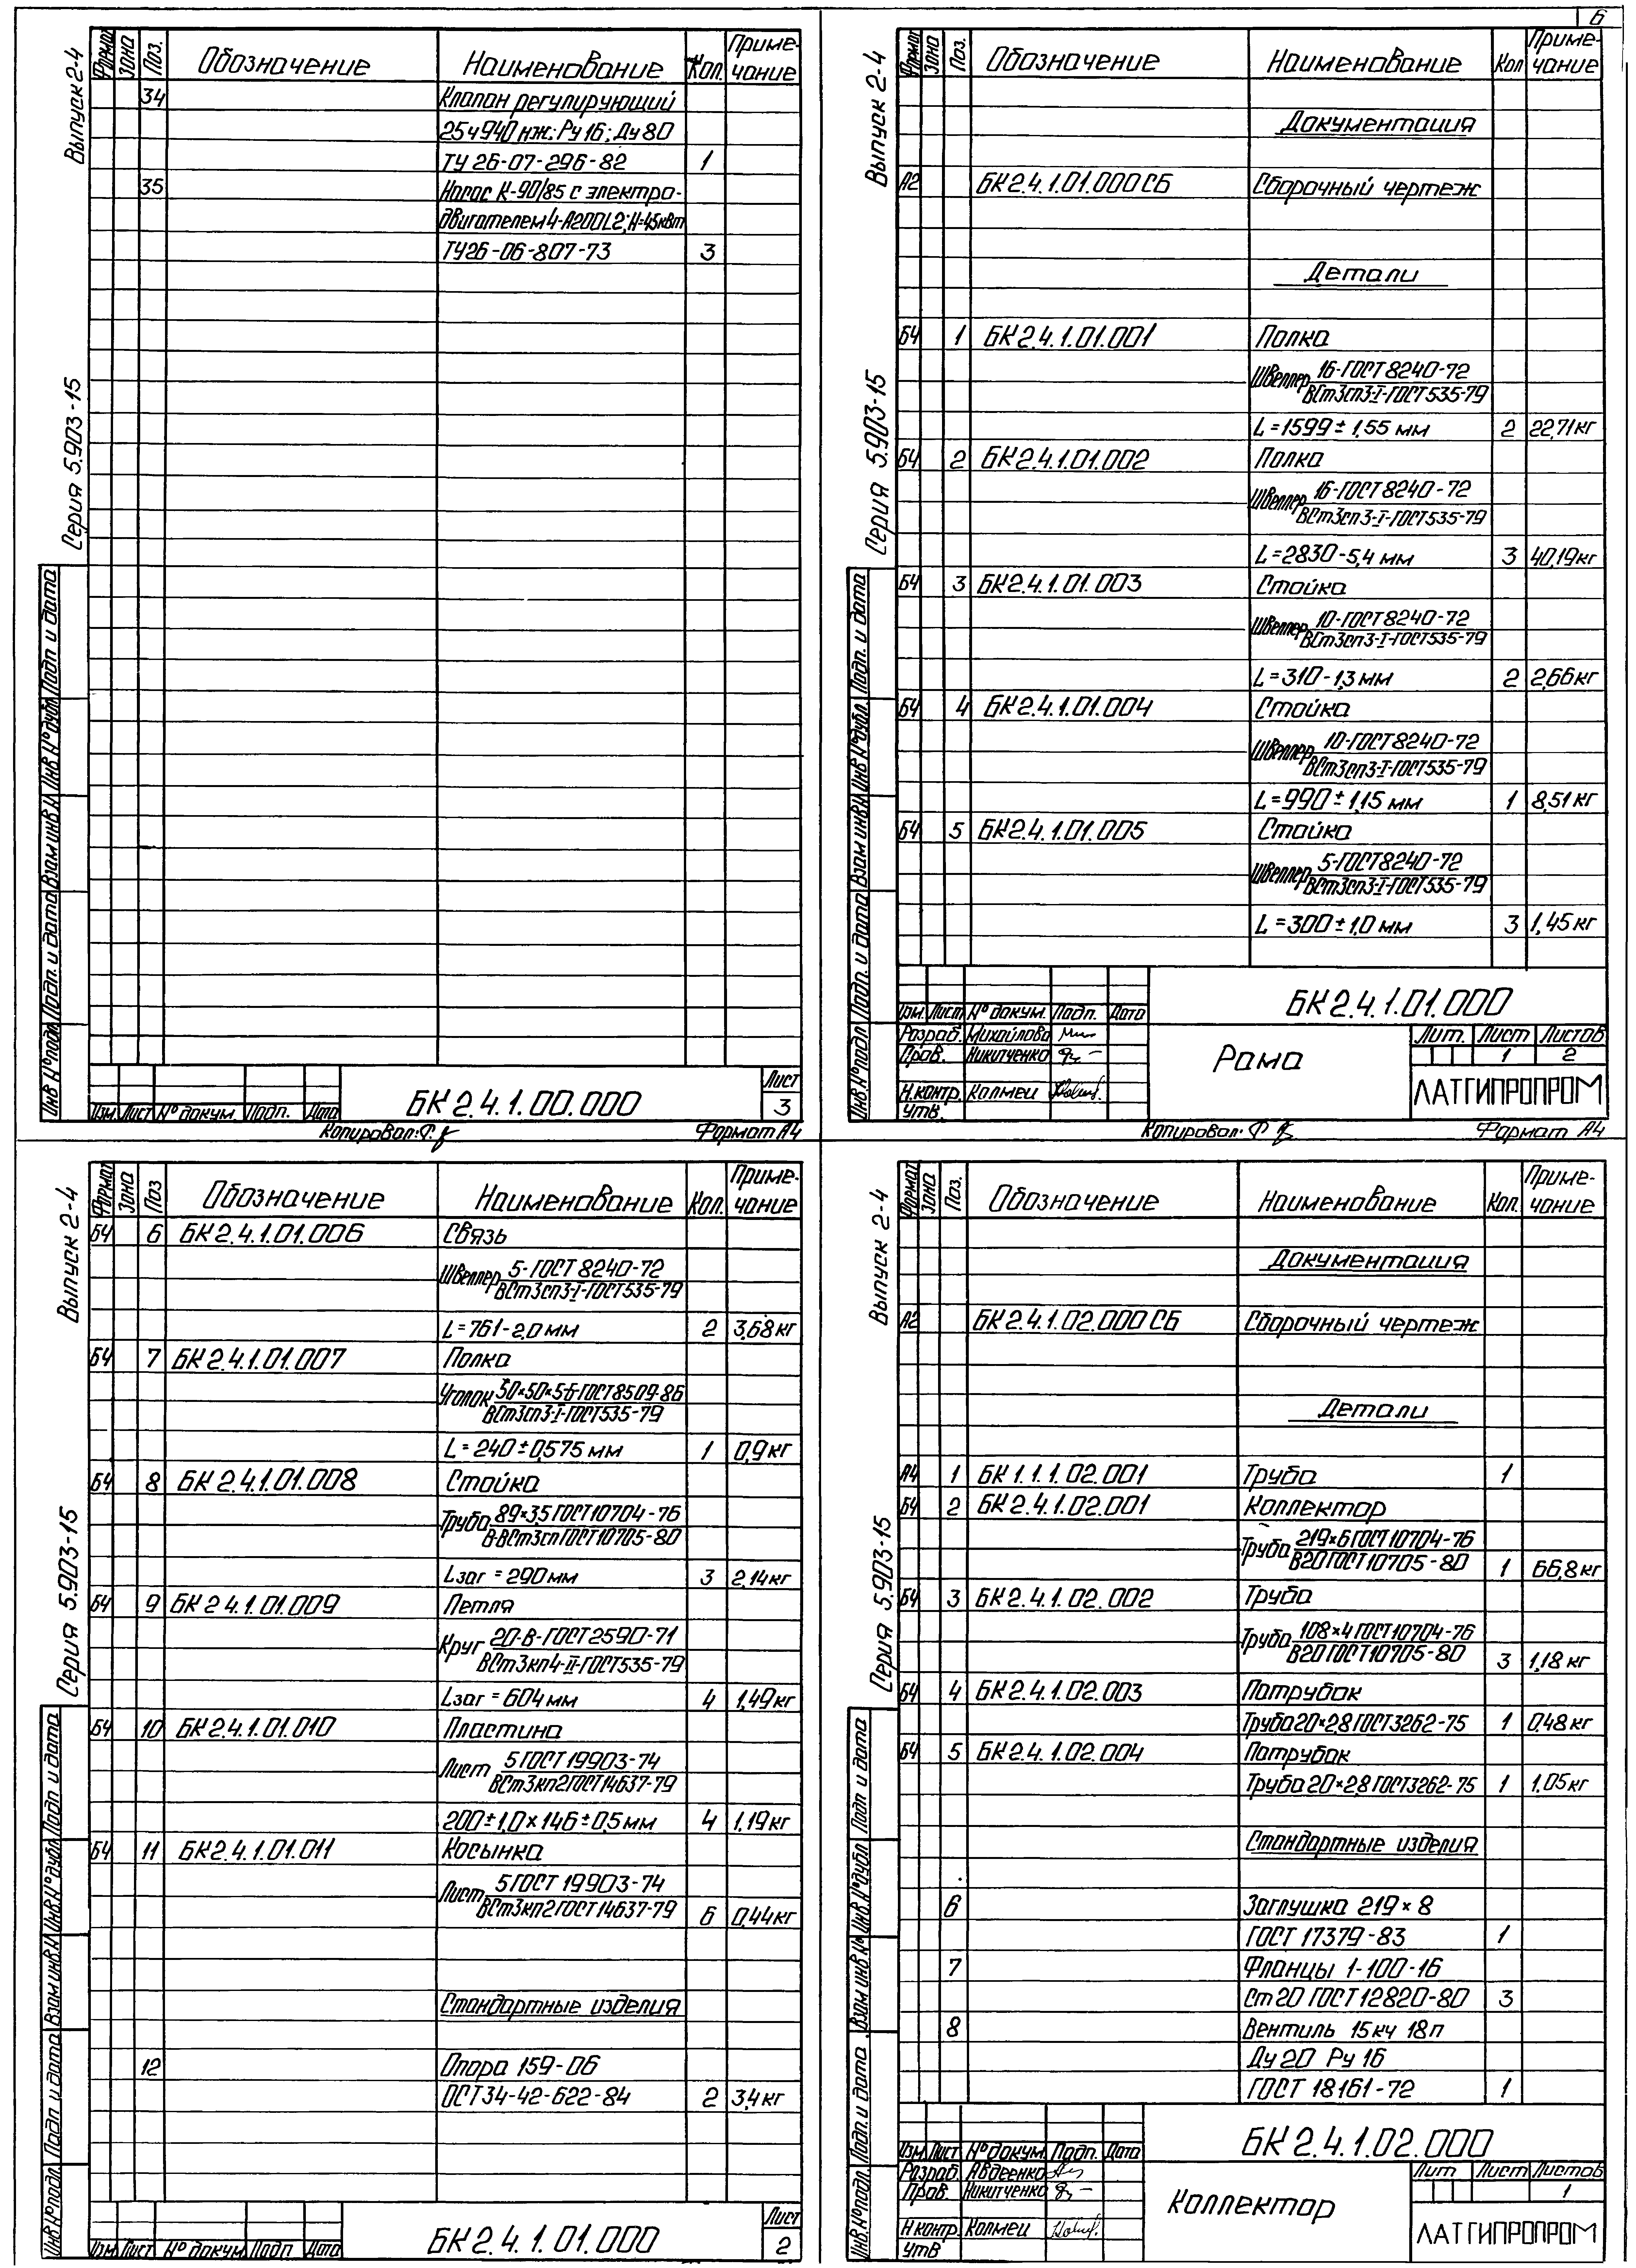 6
Выпуск 2-4
Серия 5.903-15
Формат Зона Поз. Обозначение Наименование Кол. Приме-
чание
34 Клапан регулирующий
25ч940 нж; Ру 16; Ду 80
ТУ 26-07-296-82 1
35 Насос К-90/85 с электро-
двигателем 4-А200L2; N=45кВт
ТУ26-06-807-73 3
Инв.№подл. Подп. и дата Взам инв.№ Инв №дубл Подп и дата
Изм. Лист № докум. Подп. Дата
БК 2.4.1.00.000
Лист
3
Копировал:
Формат А4
Выпуск 2-4
Серия 5.903-15
Формат Зона Поз. Обозначение Наименование Кол Приме-
чание
Документация
А2 БК2.4.1.01.000СБ Сборочный чертеж
Детали
БЧ 1 БК 2.4.1.01.001 Полка
Швеллер 16-ГОСТ 8240-72
ВСт3сп3-I-ГОСТ535-79
L=1599±1,55 мм 2 22,71кг
БЧ 2 БК2.4.1.01.002 Полка
Швеллер 16-ГОСТ 8240-72
ВСт3сп3-I-ГОСТ535-79
L=2830-5,4 мм 3 40,19кг
БЧ 3 БК2.4.1.01.003 Стойка
Швеллер 10-ГОСТ8240-72
ВСт3сп3-I-ГОСТ535-79
L=310-1,3 мм 2 2,66кг
БЧ 4 БК2.4.1.01.004 Стойка
Швеллер 10-ГОСТ8240-72
ВСт3сп3-I-ГОСТ535-79
L=990±1,15 мм 1 8,51кг
БЧ 5 БК2.4.1.01.005 Стойка
Швеллер 5-ГОСТ8240-72
ВСт3сп3-I-ГОСТ535-79
L=300±1,0 мм 3 1,45кг
Инв.№подл Подп. и дата Взам инв.№ Инв №дубл. Подп. и дата
Изм. Лист № докум. Подп. Дата
БК 2.4.1.01.000
Разраб. Михайлова
Пров. Никитченко
Н.контр. Колмец
Утв.
Рама
Лит. Лист Листов
1 2
ЛАТГИПРОПРОМ
Копировал:
Формат А4
Выпуск 2-4
Серия 5.903-15
Формат Зона Поз Обозначение Наименование Кол. Приме-
чание
БЧ 6 БК 2.4.1.01.006 Связь
Швеллер 5-ГОСТ 8240-72
ВСт3сп3-I-ГОСТ535-79
L=761-2,0 мм 2 3,68кг
БЧ 7 БК 2.4.1.01.007 Полка
Уголок 50×50×5-Б-ГОСТ8509-86
ВСт3сп3-I-ГОСТ535-79
L=240±0,575 мм 1 0,9кг
БЧ 8 БК 2.4.1.01.008 Стойка
Труба 89×3,5 ГОСТ10704-76
В-ВСт3сп ГОСТ10705-80
Lзаг = 290мм 3 2,14кг
БЧ 9 БК 2.4.1.01.009 Петля
Круг 20-В-ГОСТ2590-71
ВСт3кп4-II-ГОСТ535-79
Lзаг = 604мм 4 1,49кг
БЧ 10 БК2.4.1.01.010 Пластина
Лист 5 ГОСТ 19903-74
ВСт3кп2 ГОСТ14637-79
200±1,0×146±0,5мм 4 1,19кг
БЧ 11 БК2.4.1.01.011 Косынка
Лист 5 ГОСТ 19903-74
ВСт3кп2 ГОСТ14637-79
6 0,44кг
Стандартные изделия
12 Опора 159-06
ОСТ34-42-622-84 2 3,4кг
Инв.№подл. Подп и дата Взам инв.№ Инв.№дубл Подп и дата
Изм Лист № докум Подп Дата
БК 2.4.1.01.000
Лист
2
Выпуск 2-4
Серия 5.903-15
Формат Зона Поз. Обозначение Наименование Кол. Приме-
чание
Документация
А2 БК2.4.1.02.000 СБ Сборочный чертеж
Детали
А4 1 БК 1.1.1.02.001 Труба 1
БЧ 2 БК2.4.1.02.001 Коллектор
Труба 219×6 ГОСТ10704-76
В20 ГОСТ10705-80 1 66,8кг
БЧ 3 БК2.4.1.02.002 Труба
Труба 108×4 ГОСТ10704-76
В20 ГОСТ10705-80 3 1,18кг
БЧ 4 БК2.4.1.02.003 Патрубок
Труба 20×2,8 ГОСТ3262-75 1 0,48кг
БЧ 5 БК2.4.1.02.004 Патрубок
Труба 20×2,8 ГОСТ3262-75 1 1,05кг
Стандартные изделия
6 Заглушка 219×8
ГОСТ 17379-83 1
7 Фланцы 1-100-16
Ст20 ГОСТ 12820-80 3
8 Вентиль 15кч 18п
Ду 20 Ру 16
ГОСТ 18161-72 1
Инв.№подл. Подп. и дата Взам инв.№ Инв.№дубл Подп и дата
Изм Лист № докум. Подп. Дата
БК 2.4.1.02.000
Разраб. Авдеенко
Пров. Никитченко
Н контр. Колмец
Утв
Коллектор
Лит Лист Листов
1
ЛАТГИПРОПРОМ